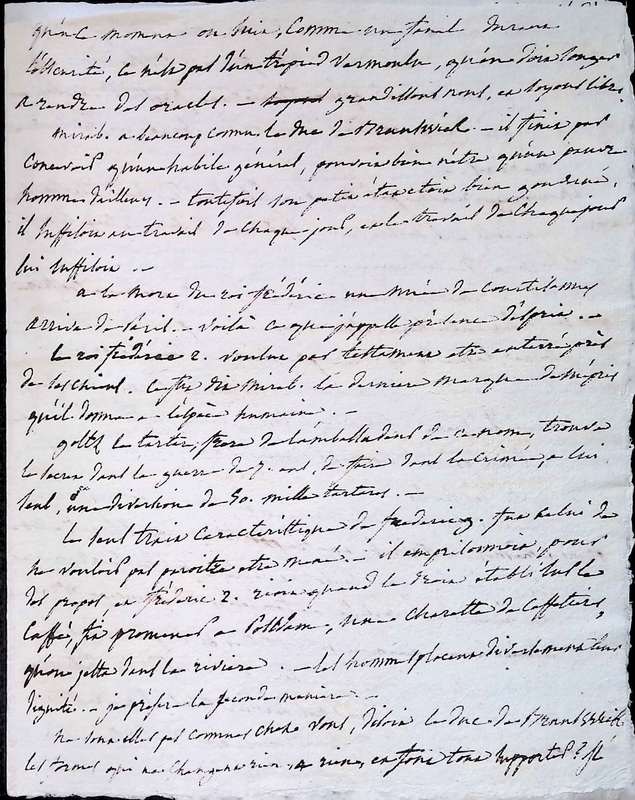 qu'en ce moment ou luira, comme un fanal
l'obscurité, ce n'est pas d'un trépied vermoulu, qu'on doit songer
a rendre des oracles. — grandissons nous, et soyons libres.
mirab. a beaucoup connu le duc de Brunswick. — il finit par
concevoir qu'un habile général, pouvoit bien n'être qu'un pauvre
homme d'ailleurs. — toutefois son petit état etoit bien gouverné,
il suffisoit au travail de chaque jour, et le travail de chaque jour
lui suffisoit. —
a la mort du roi frédéric une nuée de courtisannes
arriva de Paris. — voilà ce que j'appelle présence d'esprit. —
Le roi frédéric 2. voulut par testament etre enterré près
de ses chiens. C'est dit mirab. la derniere marque de mépris
qu'il donna a l'espèce humaine. —
goltz le tartare, frere de l'ambassadeur de ce nom, trouva
le secret dans la guerre de 7. ans, de faire dans la Crimée, a lui
seul, une diversion de 50. mille tartares. —
Le seul trait caractéristique de frederic g. fut celui de
ne vouloir pas paroitre etre mené. — il emprisonnoit, pour
des propos, et frédéric 2. rioit quand la régie établi sur le
Caffé, fit promener a Potsdam, une charette de caffetiers,
qu'on jetta dans la riviere. — les hommes placent diversement leur
dignité. — je préfere la seconde maniere. —
ne sont elles pas comme chez vous, disoit le duc de Brunswick
les formes qui ne changent rien, a rien, et font tout supporter? Il